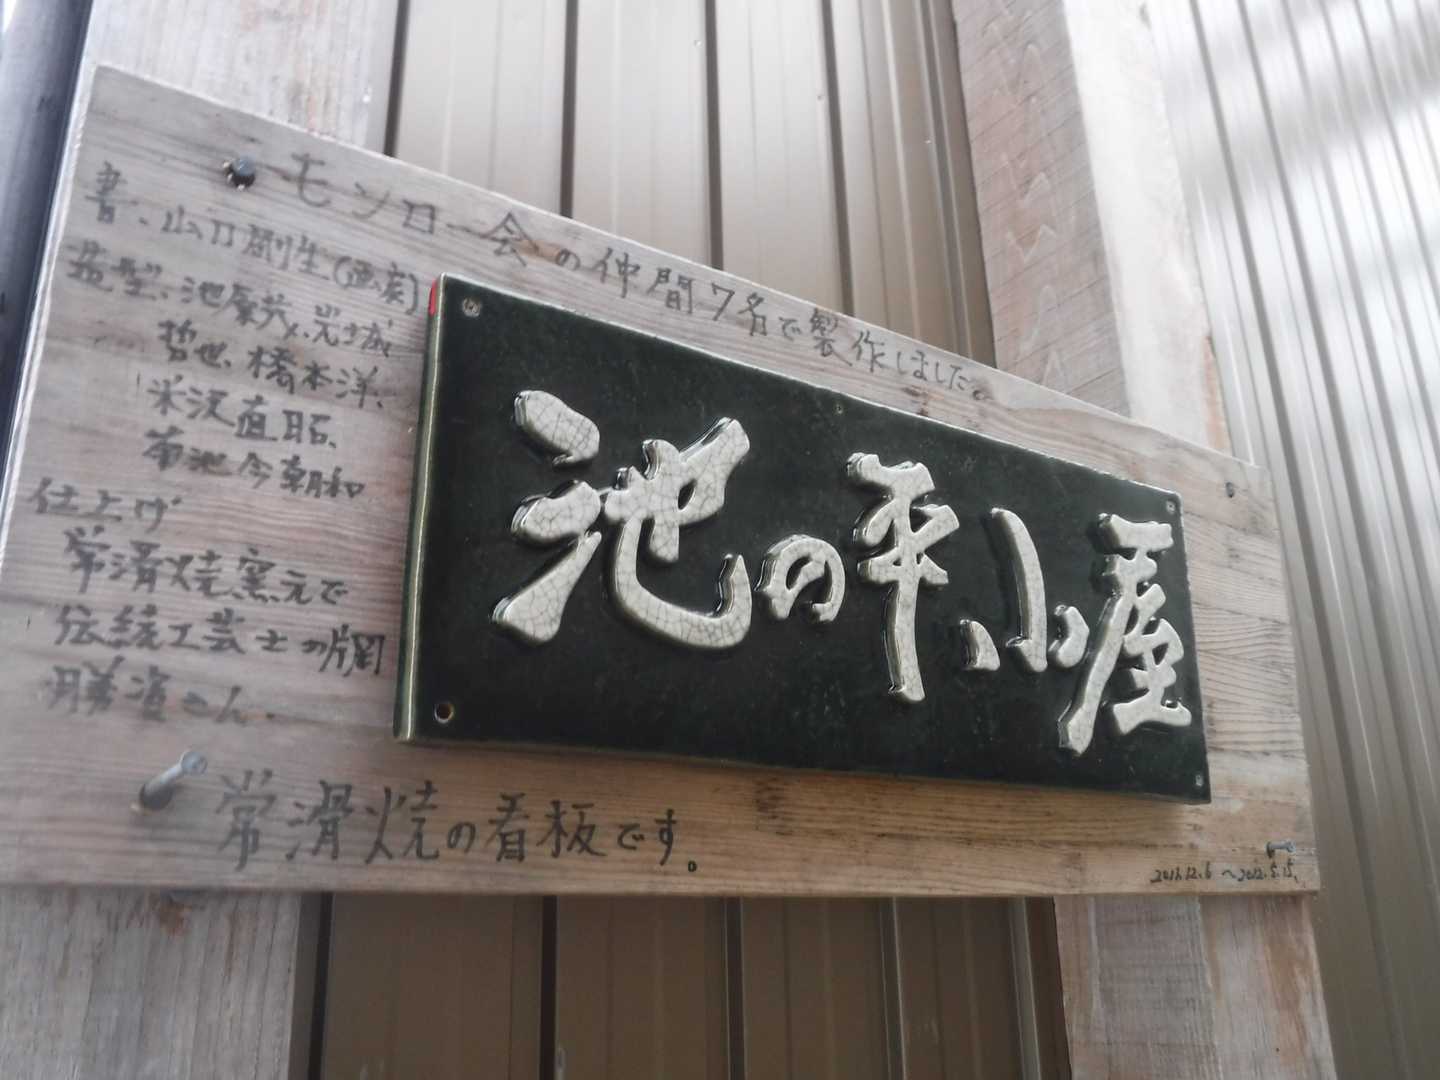 モンロー会の仲間7名で製作しました。
書、山口剛生(画家)
造型、池原茂、岩城
哲也、橋本洋、
米沢直昭、
菊池今朝和
仕上げ
常滑焼窯元で
伝統工芸士の
勝資さん
池の平小屋
常滑焼の看板です。
2011.12.6 〜2012.5.15.